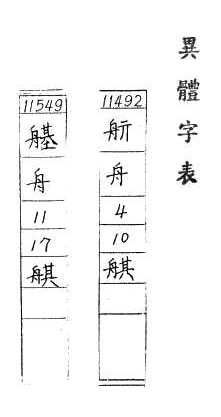 異體字表
11492
舟
4
10
䑴
11549
舟
11
17
䑴